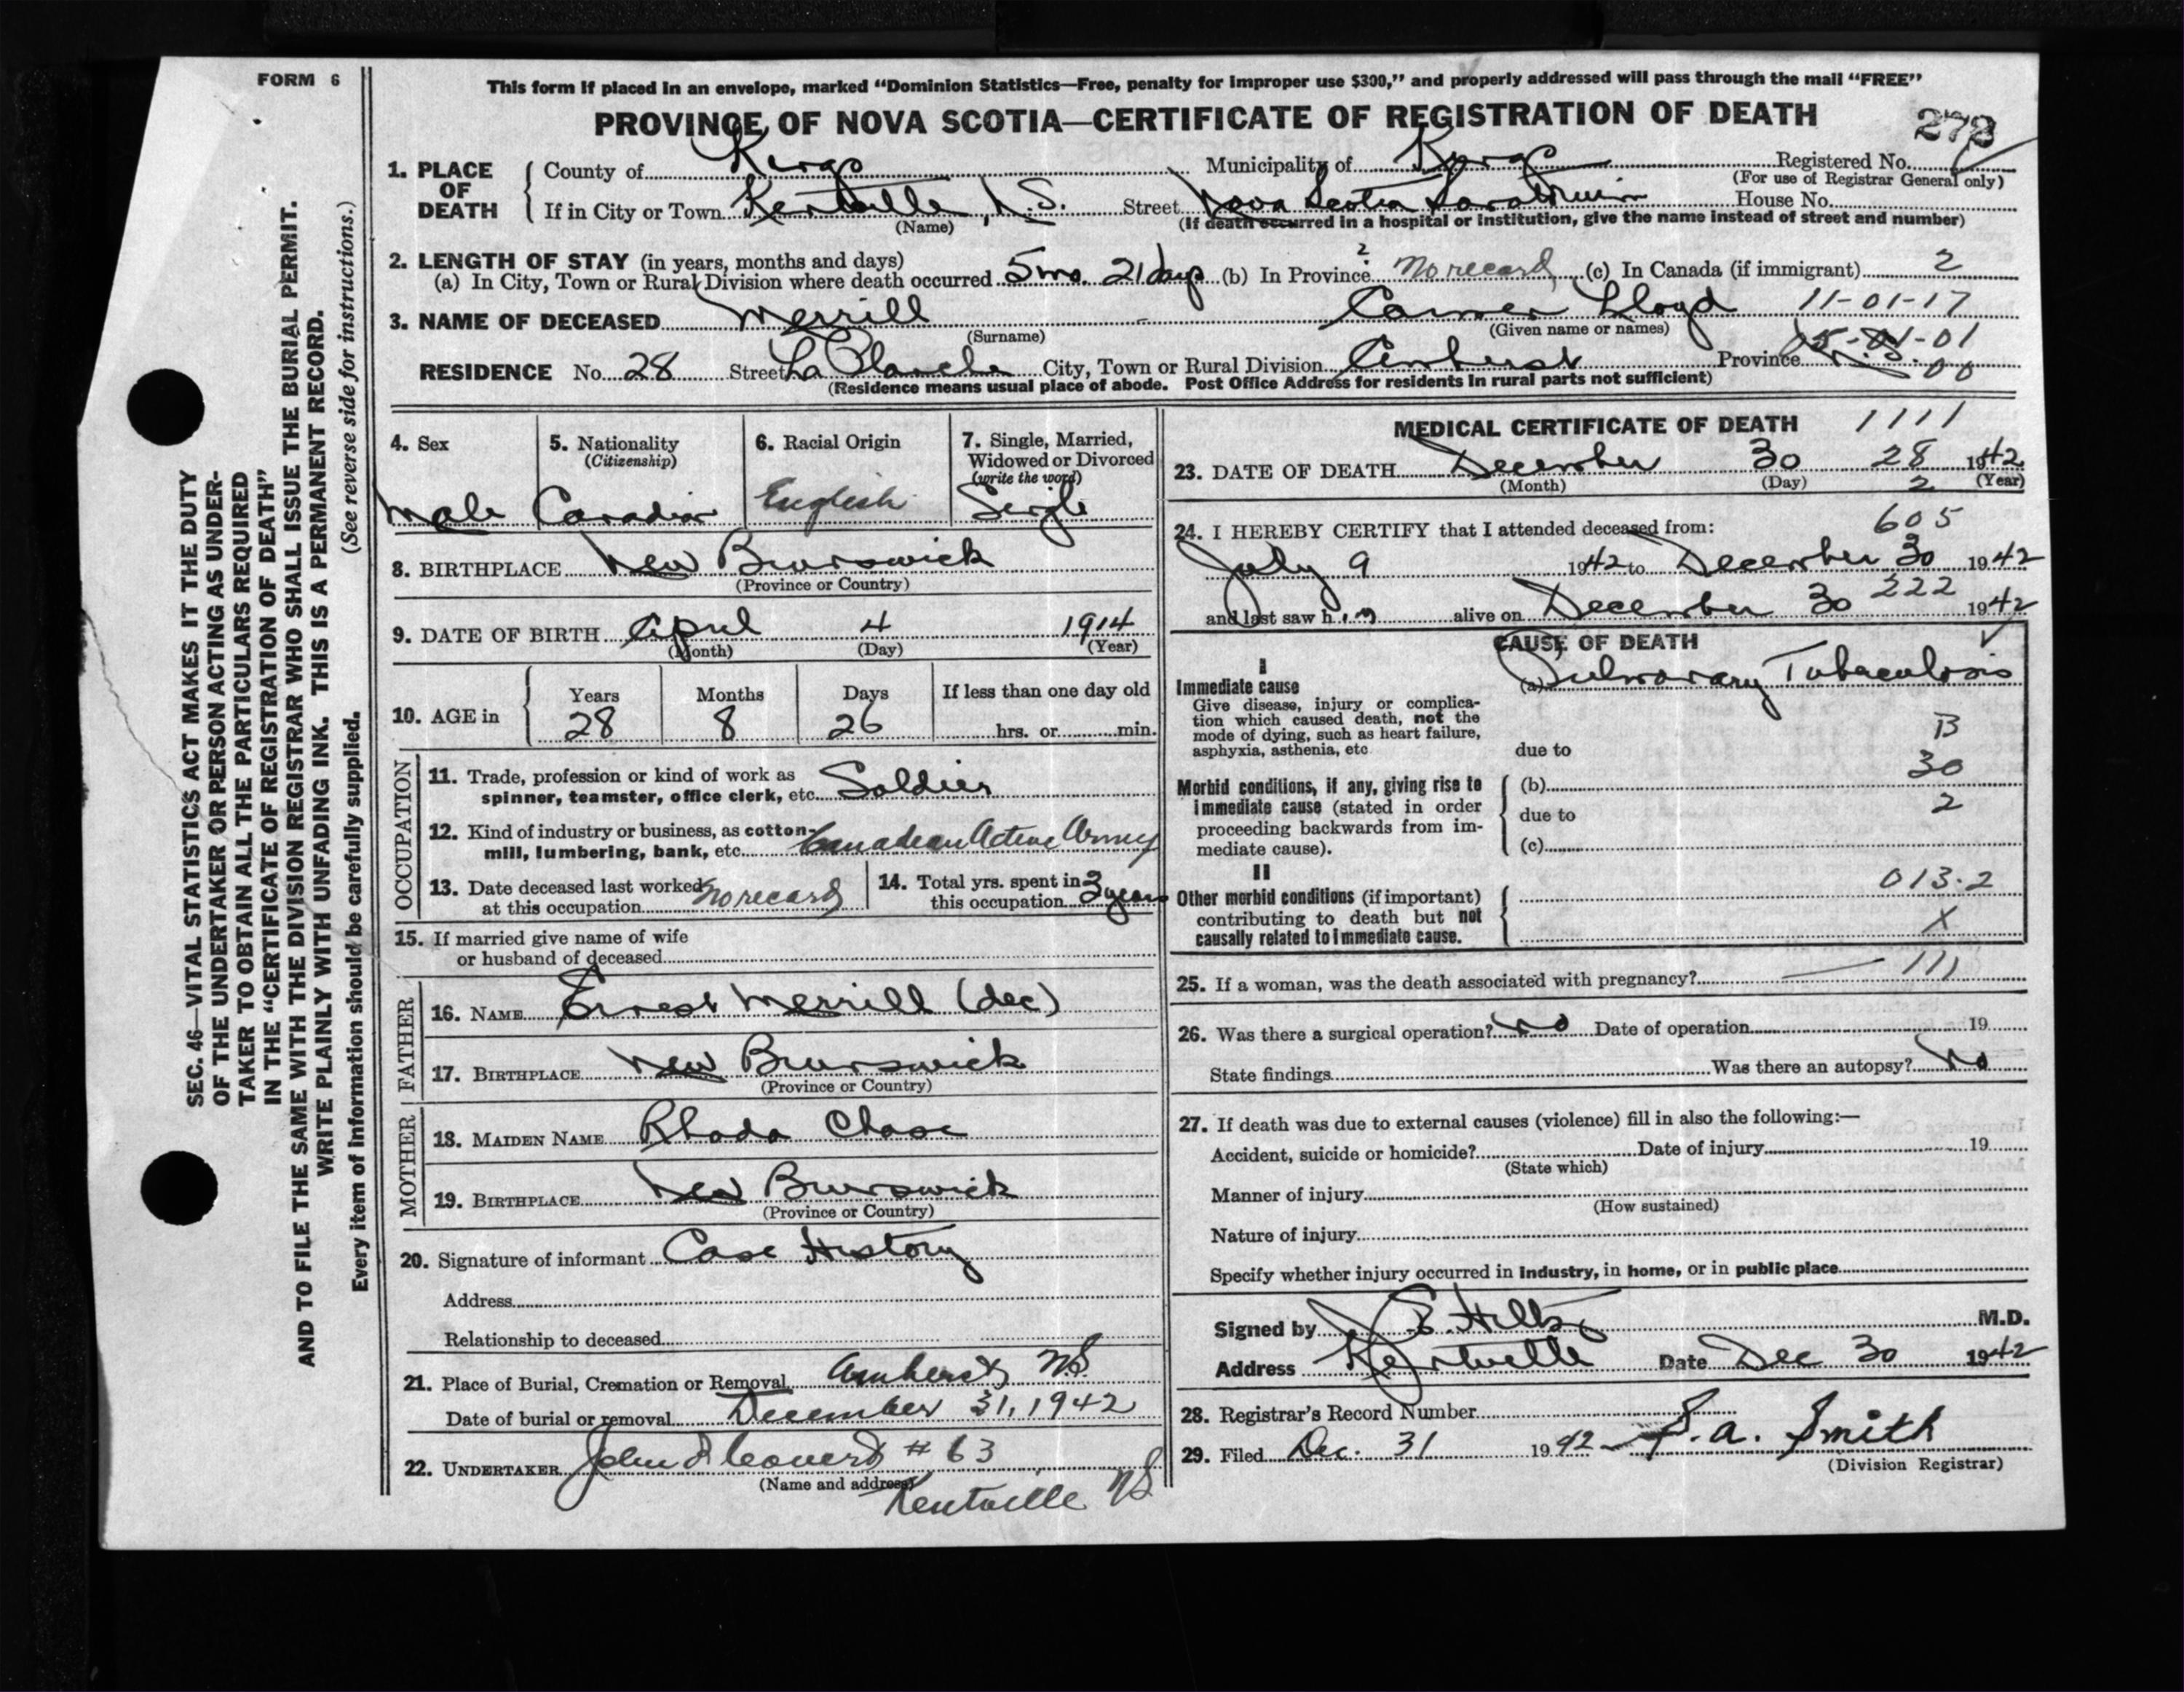 FORM 6
This form if placed in an envelope, marked "Dominion Statistics—Free, penalty for improper use $300," and properly addressed will pass through the mail "FREE"
PROVINCE OF NOVA SCOTIA—CERTIFICATE OF REGISTRATION OF DEATH
272
1. PLACE OF DEATH
County of Kings Municipality of Kings Registered No.
(For use of Registrar General only)
If in City or Town Kentville, N.S. Street Nova Scotia Sanatorium House No.
(Name) (If death occurred in a hospital or institution, give the name instead of street and number)
2. LENGTH OF STAY (in years, months and days)
(a) In City, Town or Rural Division where death occurred 5 mo. 21 days (b) In Province No record (c) In Canada (if immigrant) 2
2
11-01-17
3. NAME OF DECEASED Merrill Lloyd
(Surname) (Given name or names)
-01
RESIDENCE No. 28 Street La Planche City, Town or Rural Division Amherst Province N.S.
00
(Residence means usual place of abode. Post Office Address for residents in rural parts not sufficient)
4. Sex
Male
5. Nationality
(Citizenship)
Canadian
6. Racial Origin
English
7. Single, Married,
Widowed or Divorced
(write the word)
Single
8. BIRTHPLACE New Brunswick
(Province or Country)
9. DATE OF BIRTH April 4 1914
(Month) (Day) (Year)
10. AGE in
Years Months Days If less than one day old
28 8 26 hrs. or min.
OCCUPATION
11. Trade, profession or kind of work as
spinner, teamster, office clerk, etc. Soldier
12. Kind of industry or business, as cotton-
mill, lumbering, bank, etc. Canadian Active Army
13. Date deceased last worked
at this occupation No record
14. Total yrs. spent in
this occupation 3 years
15. If married give name of wife
or husband of deceased
FATHER
16. NAME Ernest Merrill (dec)
17. BIRTHPLACE New Brunswick
(Province or Country)
MOTHER
18. MAIDEN NAME Rhoda Chase
19. BIRTHPLACE New Brunswick
(Province or Country)
20. Signature of informant Case History
Address
Relationship to deceased
21. Place of Burial, Cremation or Removal Amherst N.S.
Date of burial or removal December 31, 1942
22. UNDERTAKER John # 63
(Name and address)
Kentville NS
MEDICAL CERTIFICATE OF DEATH
1111
23. DATE OF DEATH December 30 28 1942
(Month) (Day) 2 (Year)
24. I HEREBY CERTIFY that I attended deceased from:
605
July 9 1942 to December 30 1942
222
and last saw him alive on December 30 1942
CAUSE OF DEATH
I
Immediate cause
Give disease, injury or complica-
tion which caused death, not the
mode of dying, such as heart failure,
asphyxia, asthenia, etc
(a) Pulmonary Tuberculosis
B
due to
30
Morbid conditions, if any, giving rise to
immediate cause (stated in order
proceeding backwards from im-
mediate cause).
(b)
2
due to
(c)
II
Other morbid conditions (if important)
contributing to death but not
causally related to immediate cause.
013.2
X
25. If a woman, was the death associated with pregnancy? 111
26. Was there a surgical operation? No Date of operation 19
State findings Was there an autopsy? No
27. If death was due to external causes (violence) fill in also the following:—
Accident, suicide or homicide? Date of injury 19
(State which)
Manner of injury
(How sustained)
Nature of injury
Specify whether injury occurred in industry, in home, or in public place
Signed by M.D.
Address Kentville Date Dec 30 1942
28. Registrar's Record Number
29. Filed Dec. 31 1942 S. A. Smith
(Division Registrar)
SEC. 46—VITAL STATISTICS ACT MAKES IT THE DUTY
OF THE UNDERTAKER OR PERSON ACTING AS UNDER-
TAKER TO OBTAIN ALL THE PARTICULARS REQUIRED
IN THE "CERTIFICATE OF REGISTRATION OF DEATH"
AND TO FILE THE SAME WITH THE DIVISION REGISTRAR WHO SHALL ISSUE THE BURIAL PERMIT.
WRITE PLAINLY WITH UNFADING INK. THIS IS A PERMANENT RECORD.
(See reverse side for instructions.)
Every item of information should be carefully supplied.